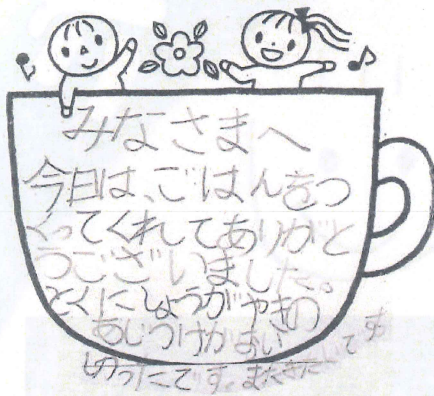 みなさまへ
今日は、ごはんをつ
くってくれてありがと
うございました。
とくにしょうがやきの
あじつけがおい
しかったです。またきたいです